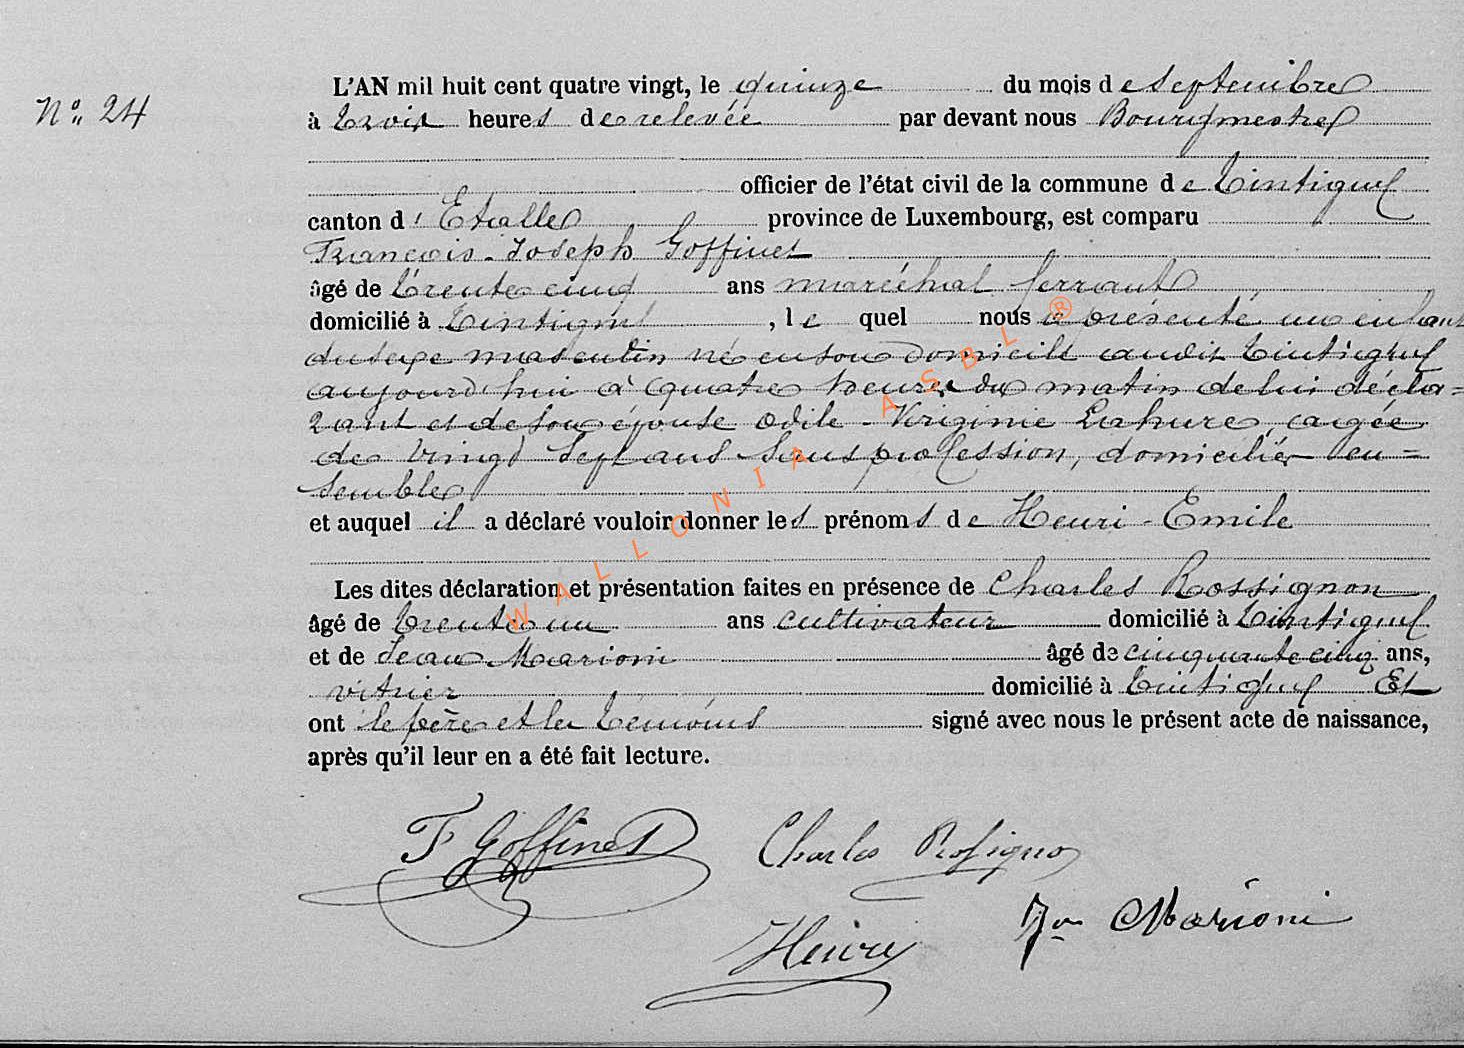 N° 24
L'AN mil huit cent quatre vingt, le quinze du mois de septembre
à trois heures de relevée par devant nous Bourgmestre
officier de l'état civil de la commune de Tintigny
canton d'Etalle province de Luxembourg, est comparu
François-Joseph Goffinet
âgé de trente cinq ans maréchal ferrant
domicilié à Tintigny, le quel nous a présenté un enfant
du sexe masculin né en son domicile audit Tintigny
aujourd'hui à quatre heures du matin de lui décla=
rant et de son épouse Odile-Virginie Lahure, agée
de vingt sept ans sans profession, domiciliés en=
semble
et auquel il a déclaré vouloir donner les prénoms de Henri-Emile
Les dites déclaration et présentation faites en présence de Charles Rossignon
âgé de trente un ans cultivateur domicilié à Tintigny
et de Jean Marioni âgé de cinquante cinq ans,
vitrier domicilié à Tintigny Et
ont le père et les témoins signé avec nous le présent acte de naissance,
après qu'il leur en a été fait lecture.
F Goffinet Charles Rosignon
Jn Marioni
Henry
WALLONIA ASBL ®